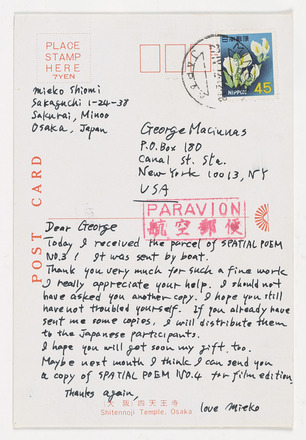 PLACE
STAMP
HERE
7YEN
日本郵便
NIPPON
45
mieko Shiomi
Sakaguchi 1-24-38
Sakurai, Minoo
Osaka, Japan
George Maciunas
P.O. Box 180
Canal St. Sta.
New York 10013, NY
USA
PARAVION
航空郵便
POST CARD
Dear George
Today I received the parcel of SPATIAL POEM
NO.3! It was sent by boat.
Thank you very much for such a fine work
I really appreciate your help. I should not
have asked you another copy. I hope you still
have not troubled yourself. If you already have
sent me some copies, I will distribute them
to the Japanese participants.
I hope you will get soon my gift, too.
Maybe next month I think I can send you
a copy of SPATIAL POEM NO.4 for film edition
Thanks again,
love mieko
(大阪) 四天王寺
Shitennoji Temple, Osaka